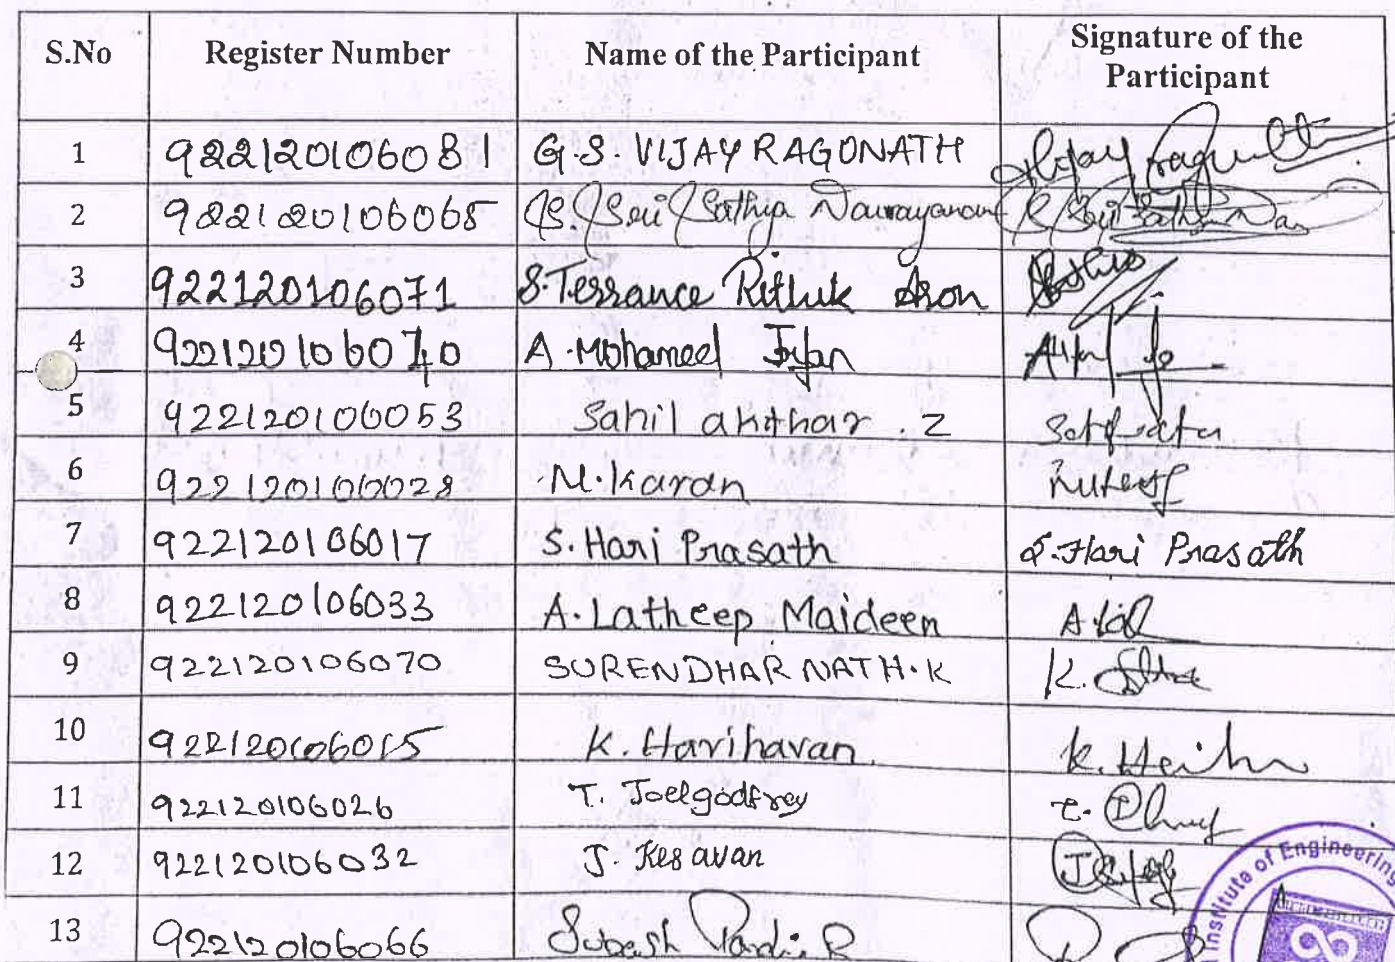 S.No Register Number Name of the Participant Signature of the Participant
1 922120106081 G.S. VIJAY RAGONATH Vijay
2 922120106065 S. Sri Sathya Naurayanan S. Sri
3 922120106071 S. Terrance Rithik Aron
4 922120106040 A. Mohamed Irfan
5 922120106053 Sahil akthar . Z
6 922120106028 M. Karan
7 922120106017 S. Hari Prasath S. Hari Prasath
8 922120106033 A. Latheep Maideen
9 922120106070 SURENDHAR NATH. K K.
10 922120106015 K. Hariharan K.
11 922120106026 T. Joelgodfrey
12 922120106032 J. Kesavan
13 922120106066 Subash Pandi R
Institute of Engineering